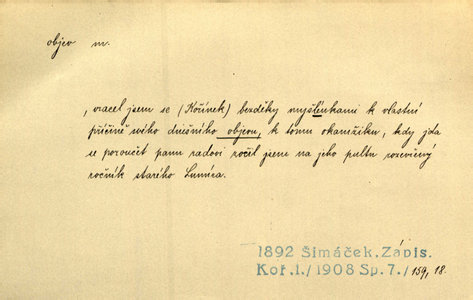 objev m.
, vracel jsem se (Kořínek) bezděky myšlenkami k vlastní
příčině svého dnešního objevu, k tomu okamžiku, kdy jda
se poroučet panu radovi zočil jsem na jeho pultu rozevřený
ročník starého Lumíra.
1892 Šimáček, Zápis.
Koř.I./1908 Sp.7./159, 18.